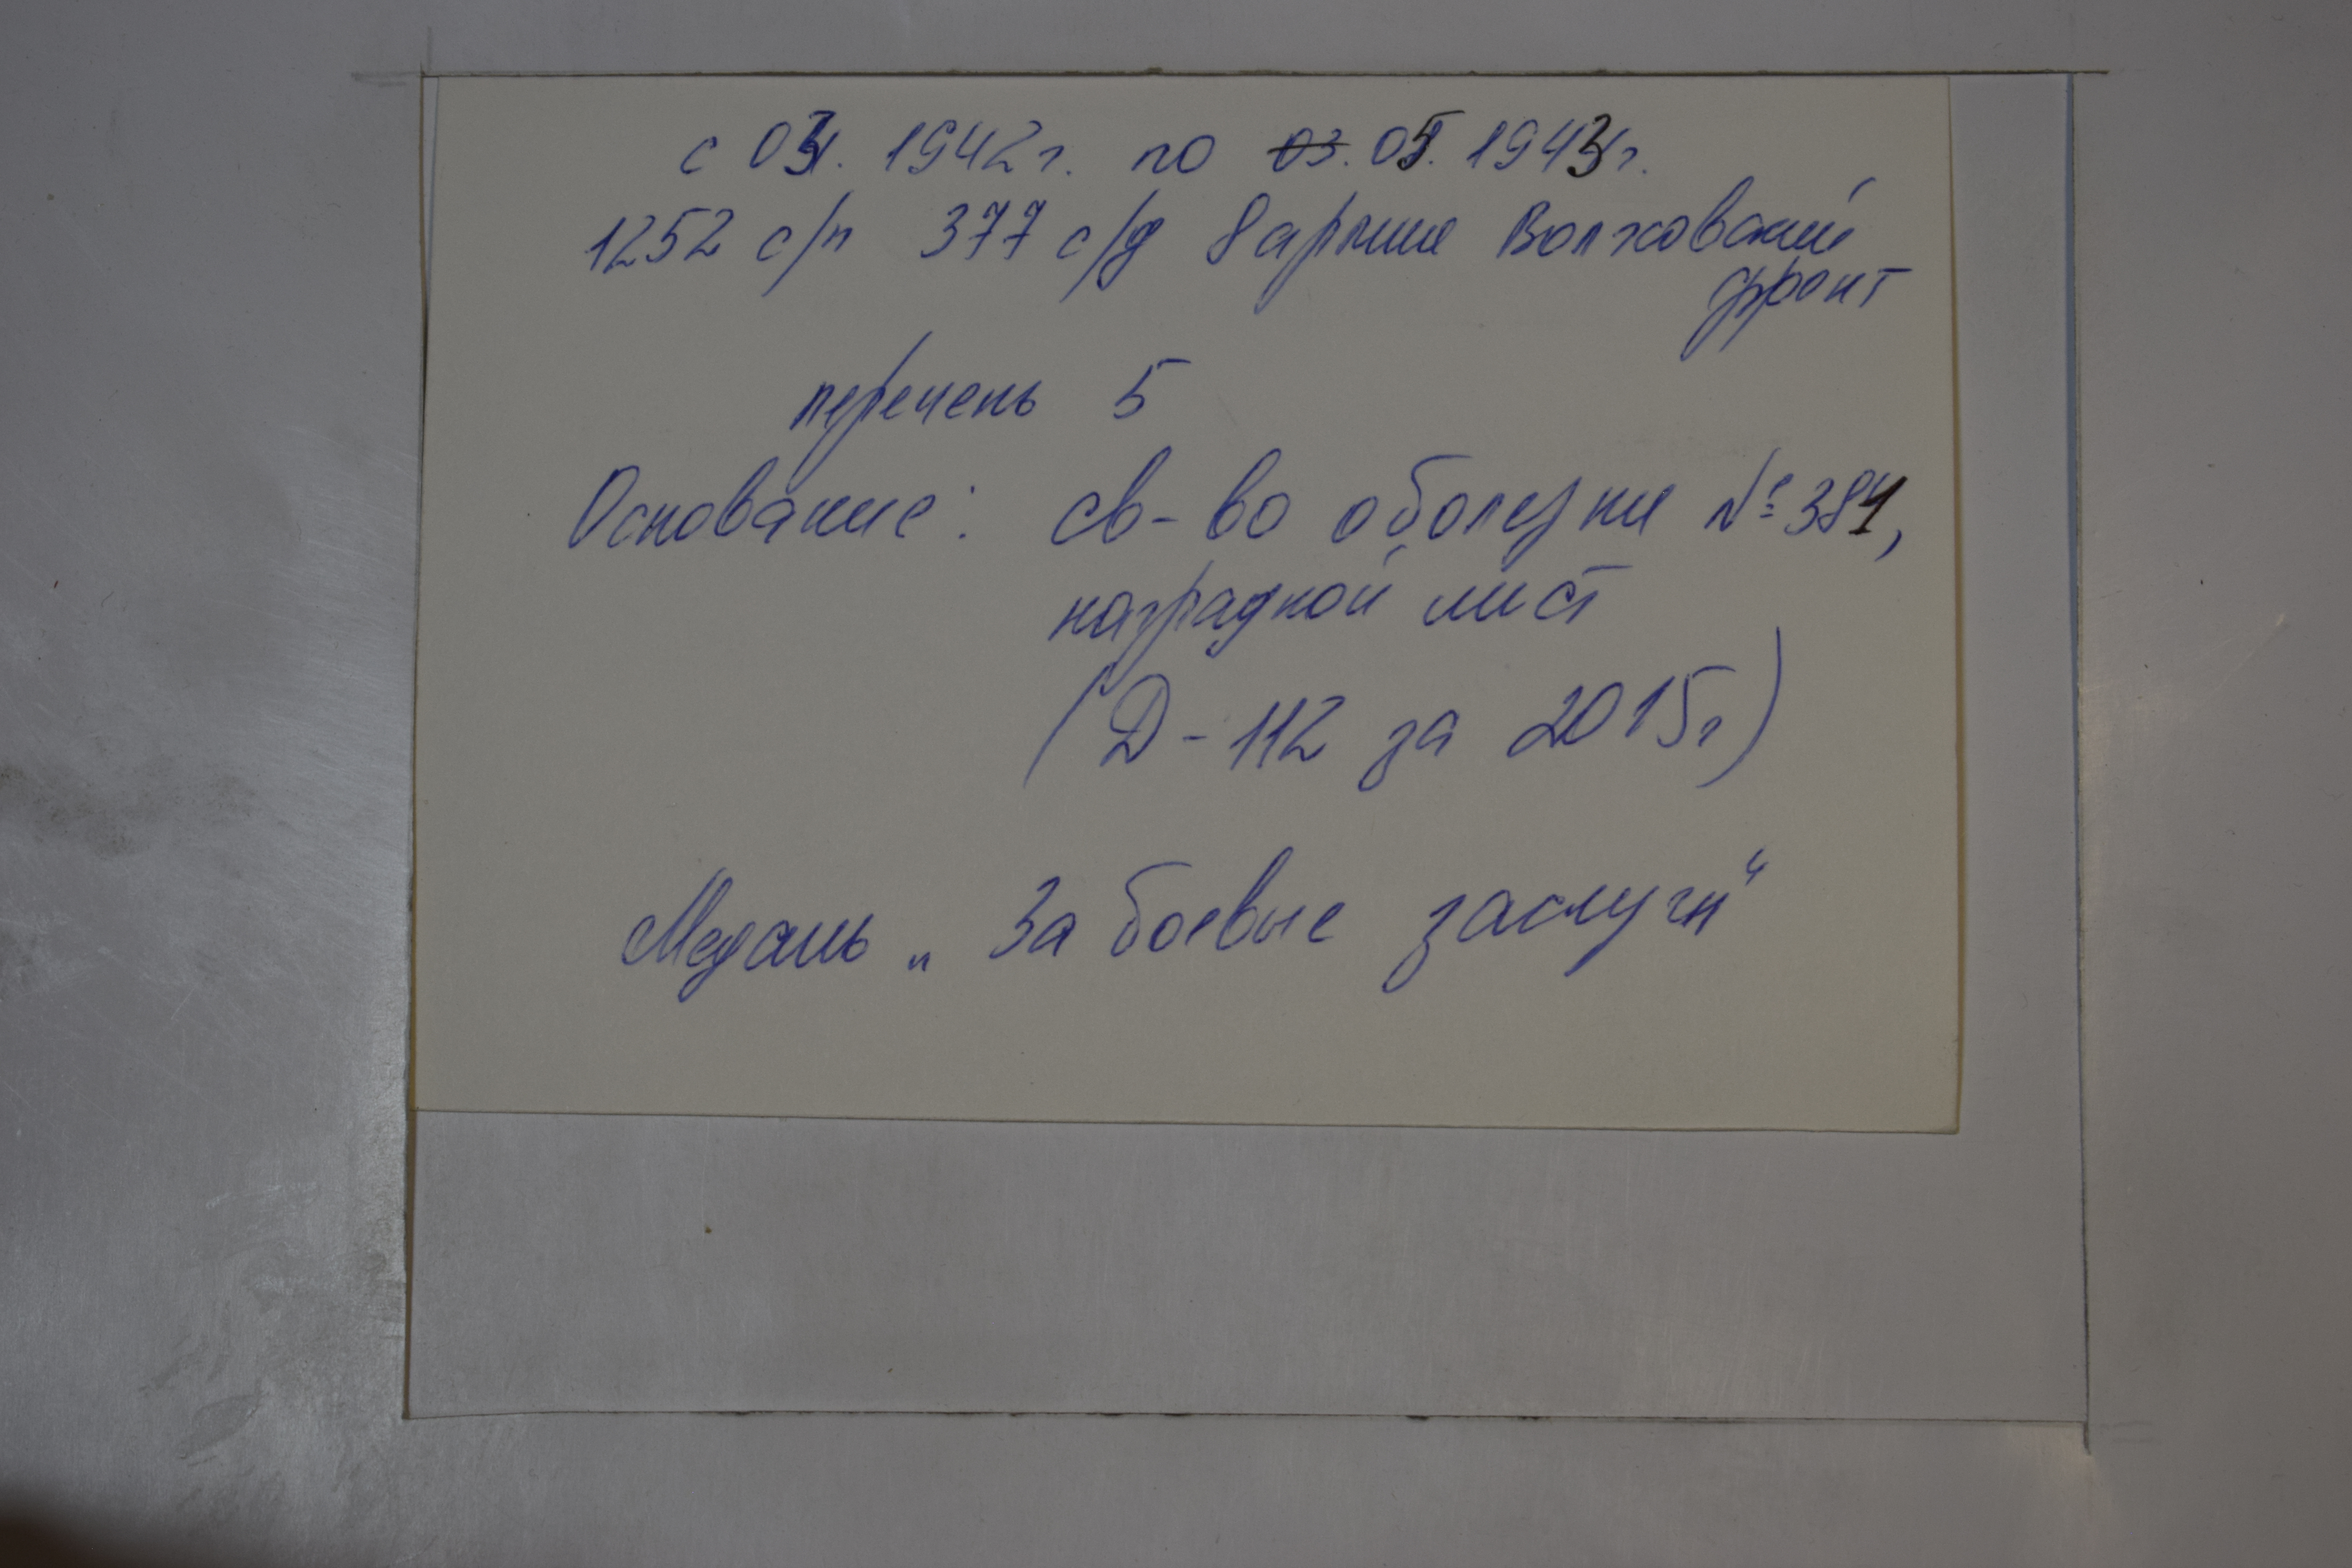 с 03. 1942г. по 03. 05. 1943г.
1252 с/п 377 с/д 8 армии Волховский
фронт
перечень 5
Основание: св-во о болезни № 381,
наградной лист
(Д-112 за 2015г)
Медаль „За боевые заслуги“